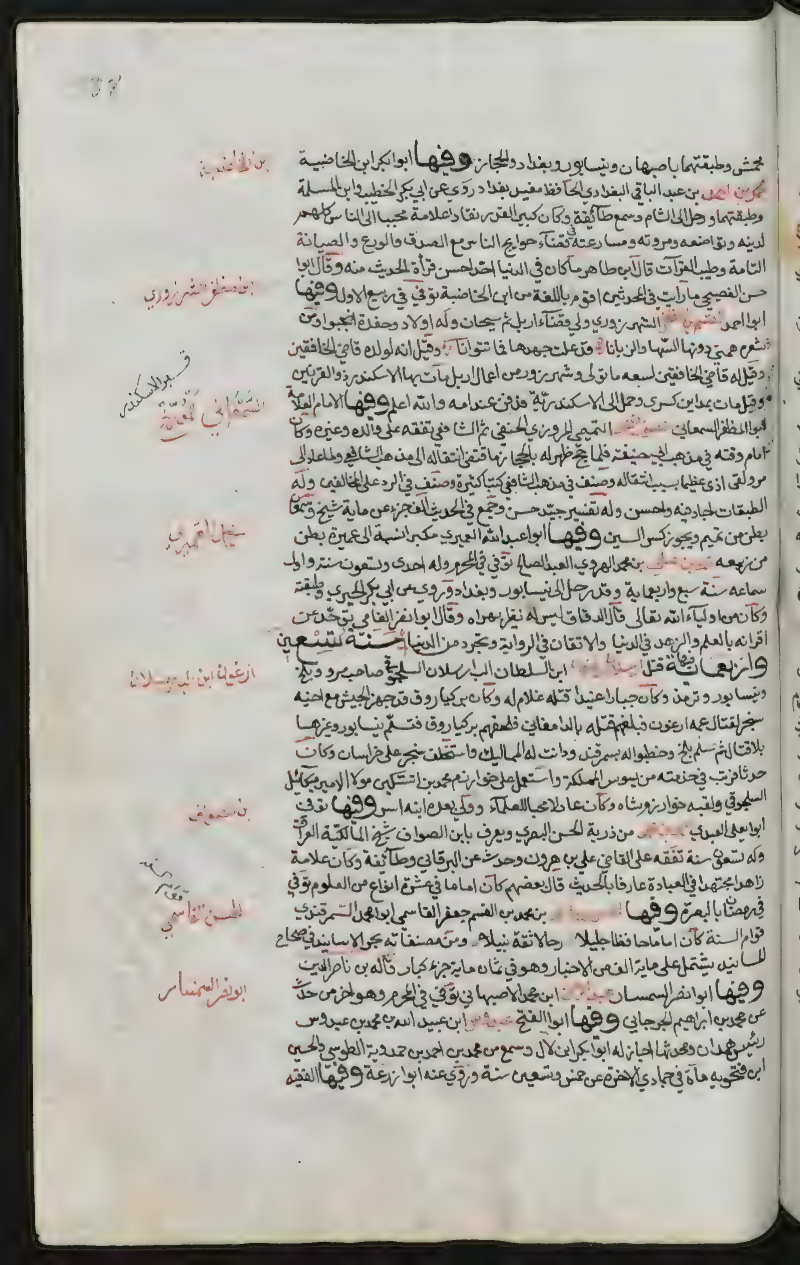 محمش وطبقتهما باصبهان ونيسابور وبغداد والحجاز وفيها ابو بكر ابن الخاضبة
محمد بن احمد بن عبد الباقي البغدادي الحافظ مفيد بغداد روى عن ابي بكر الخطيب وابن المسلمة
وطبقتهما ورحل الى الشام وسمع طائفة وكان كبير القدر نقادا علامة محببا الى الناس كلهم
لدينه وتواضعه ومروته ومسارعته في قضاء حوايج الناس مع الصدق والورع والصيانة
التامة وطيب القرآت قال ابن طاهر ما كان في الدنيا احد احسن قرأة للحديث منه وقال ابو ا
حسن الفصيحي ما رايت في المحدثين اقوم باللغة من ابن الخاضبة توفي في ربيع الاول وفيها
ابو احمد القسم بن مظفر الشهرزوري ولي قضاء اربل ثم سنجار وله اولاد وحفدة انجبوا ومن
شعره همتي دونها السها والزبانا قد علت جهدها فما تتوانا وقيل انه لولده قاضي الخافقين
وقيل له قاضي الخافقين لسعه ما تولى وشهرزور من اعمال اربل مات بها الاسكندر ذو القرنين
وقيل مات بمداين كسرى وحمل الى الاسكندرية فدفن عند امه والله اعلم وفيها الامام العلامة
ابو المظفر السمعاني منصور بن محمد التميمي المروزي الحنفي ثم الشافعي تفقه على والده وغيره وكان
امام وقته في مذهب ابي حنيفة فلما حج ظهر له بالحجاز ما قتضى انتقاله الى مذهب الشافعي ولما عاد الى
مرو لقى اذى عظيما بسبب انتقاله وصنف في مذهب الشافعي كتبا كثيرة وصنف في الرد على المخالفين وله
الطبقات اجاد فيه واحسن وله تفسير جيد حسن وجمع في الحديث الف جزء عن ماية شيخ وسمعان
بطن من تميم ويجوز كسر السين وفيها ابو عبد الله العميري مكبرا نسبة الى عميرة بطن
من ربيعه محمد بن علي بن محمد الهروي العبد الصالح توفي في المحرم وله احدى وتسعون سنة واول
سماعه سنة سبع واربعماية وقد رحل الى نيسابور وبغداد وروى عن ابي بكر الحيري وطبقته
وكان من اولياء الله تعالى قال الدقاق ليس له نظير بهراه وقال ابو نضر الفامي توحد عن
اقرانه بالعلم والزهد في الدنيا والاتقان في الرواية وتجرد من الدنيا سنة تسعين
واربعمائة فيها قتل ارسلان ارغون ابن السلطان الب ارسلان السلجوقي صاحب مرو وبلخ
ونيسابور وترمذ وكان جبارا عنيدا قتله غلام له وكان بركياروق قد جهز الجيش مع اخيه
سنجر لقتال عمه ارغون فبلغهم قتله بالدامغان فلحقهم بركياروق فتسلم نيسابور وغيرها
بلا قتال ثم تسلم بلخ وخطبوا له بسمرقند ودانت له الممالك واستخلف سنجر على خراسان وكان
حدثا فرتب في خدمته من يسوس المملكة واستعمل على خوارزم محمد بن انشتكين مولا الامير ميكائيل
السلجوقي ولقبه خوارزم شاه وكان عادلا محبا للعلماء وولي بعده ابنه اتسز وفيها توفي
ابو يعلى العبدي احمد بن محمد من ذرية الحسن البصري ويعرف بابن الصواف شيخ المالكية العراق
وله تسعون سنة تفقه على القاضي علي بن هرون وحدث عن البرقاني وطائفة وكان علامة
زاهدا مجتهدا في العبادة عارفا بالحديث قال بعضهم كان اماما في عشرة انواع من العلوم توفي
في رمضان بالبصرة وفيها الحسن بن محمد بن القسم جعفر القاسمي ابو محمد السمرقندي
قوام السنة كان اماما حافظا جليلا رحالا ثقة نبيلا ومن مصنفاته بحر الاسانيد في صحاح
المسانيد يشتمل على ماية الف من الاخبار وهو في ثمان ماية جزء كبار قاله بن ناصر الدين
وفيها ابو نصر السمسار عبد الرحمن ابن محمد الاصبهاني توفي في المحرم وهو اخر من حدث
عن محمد بن ابراهيم الجرجاني وفيها ابو الفتح عبدوس ابن عبيد الله بن محمد بن عبدوس
رئيس همدان ومحدثها اجاز له ابو بكر ابن لال وسمع من محمد بن احمد بن حمدوية الطوسي والحسين
ابن فتحويه مات في جمادى الاخرة عن خمس وتسعين سنة وروى عنه ابو زرعة وفيها الفقيه
بن الخاضبة
ابن مظفر الشهرزوري
قبر الاسكندر
السمعاني
ارغون ابن الب ارسلان
بن صواف
الحسن القاسمي
ابو نصر السمسار